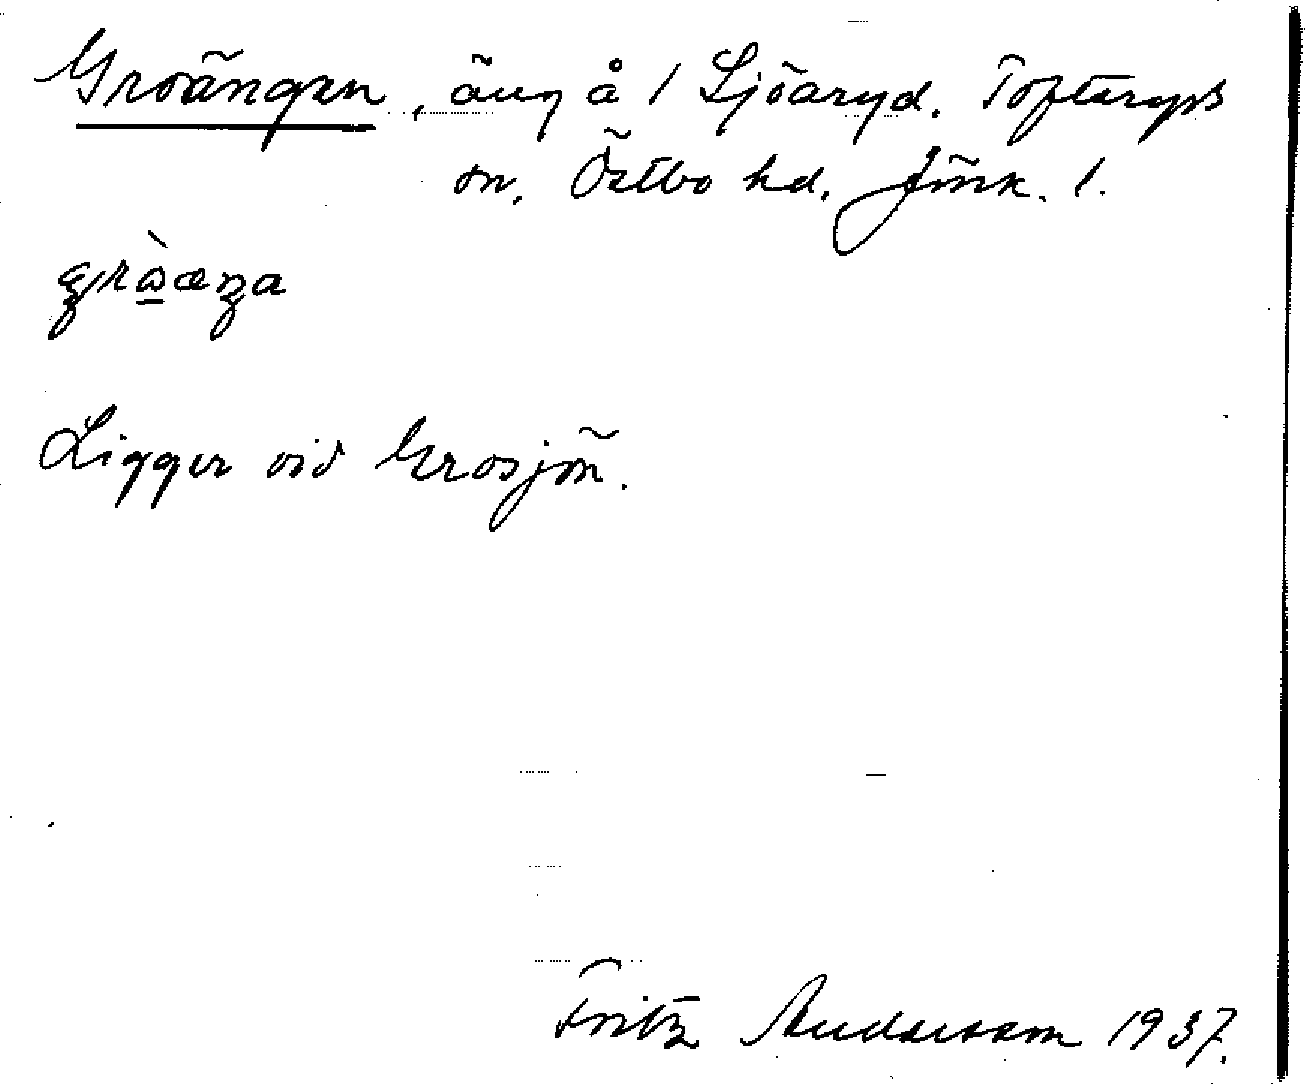 Groängen, äng å 1 Sjöaryd. Tofteryds
sn. Östbo hd. Jönk. l.
gròæŋa
Ligger vid Grosjön.
Fritz Andersson 1937.